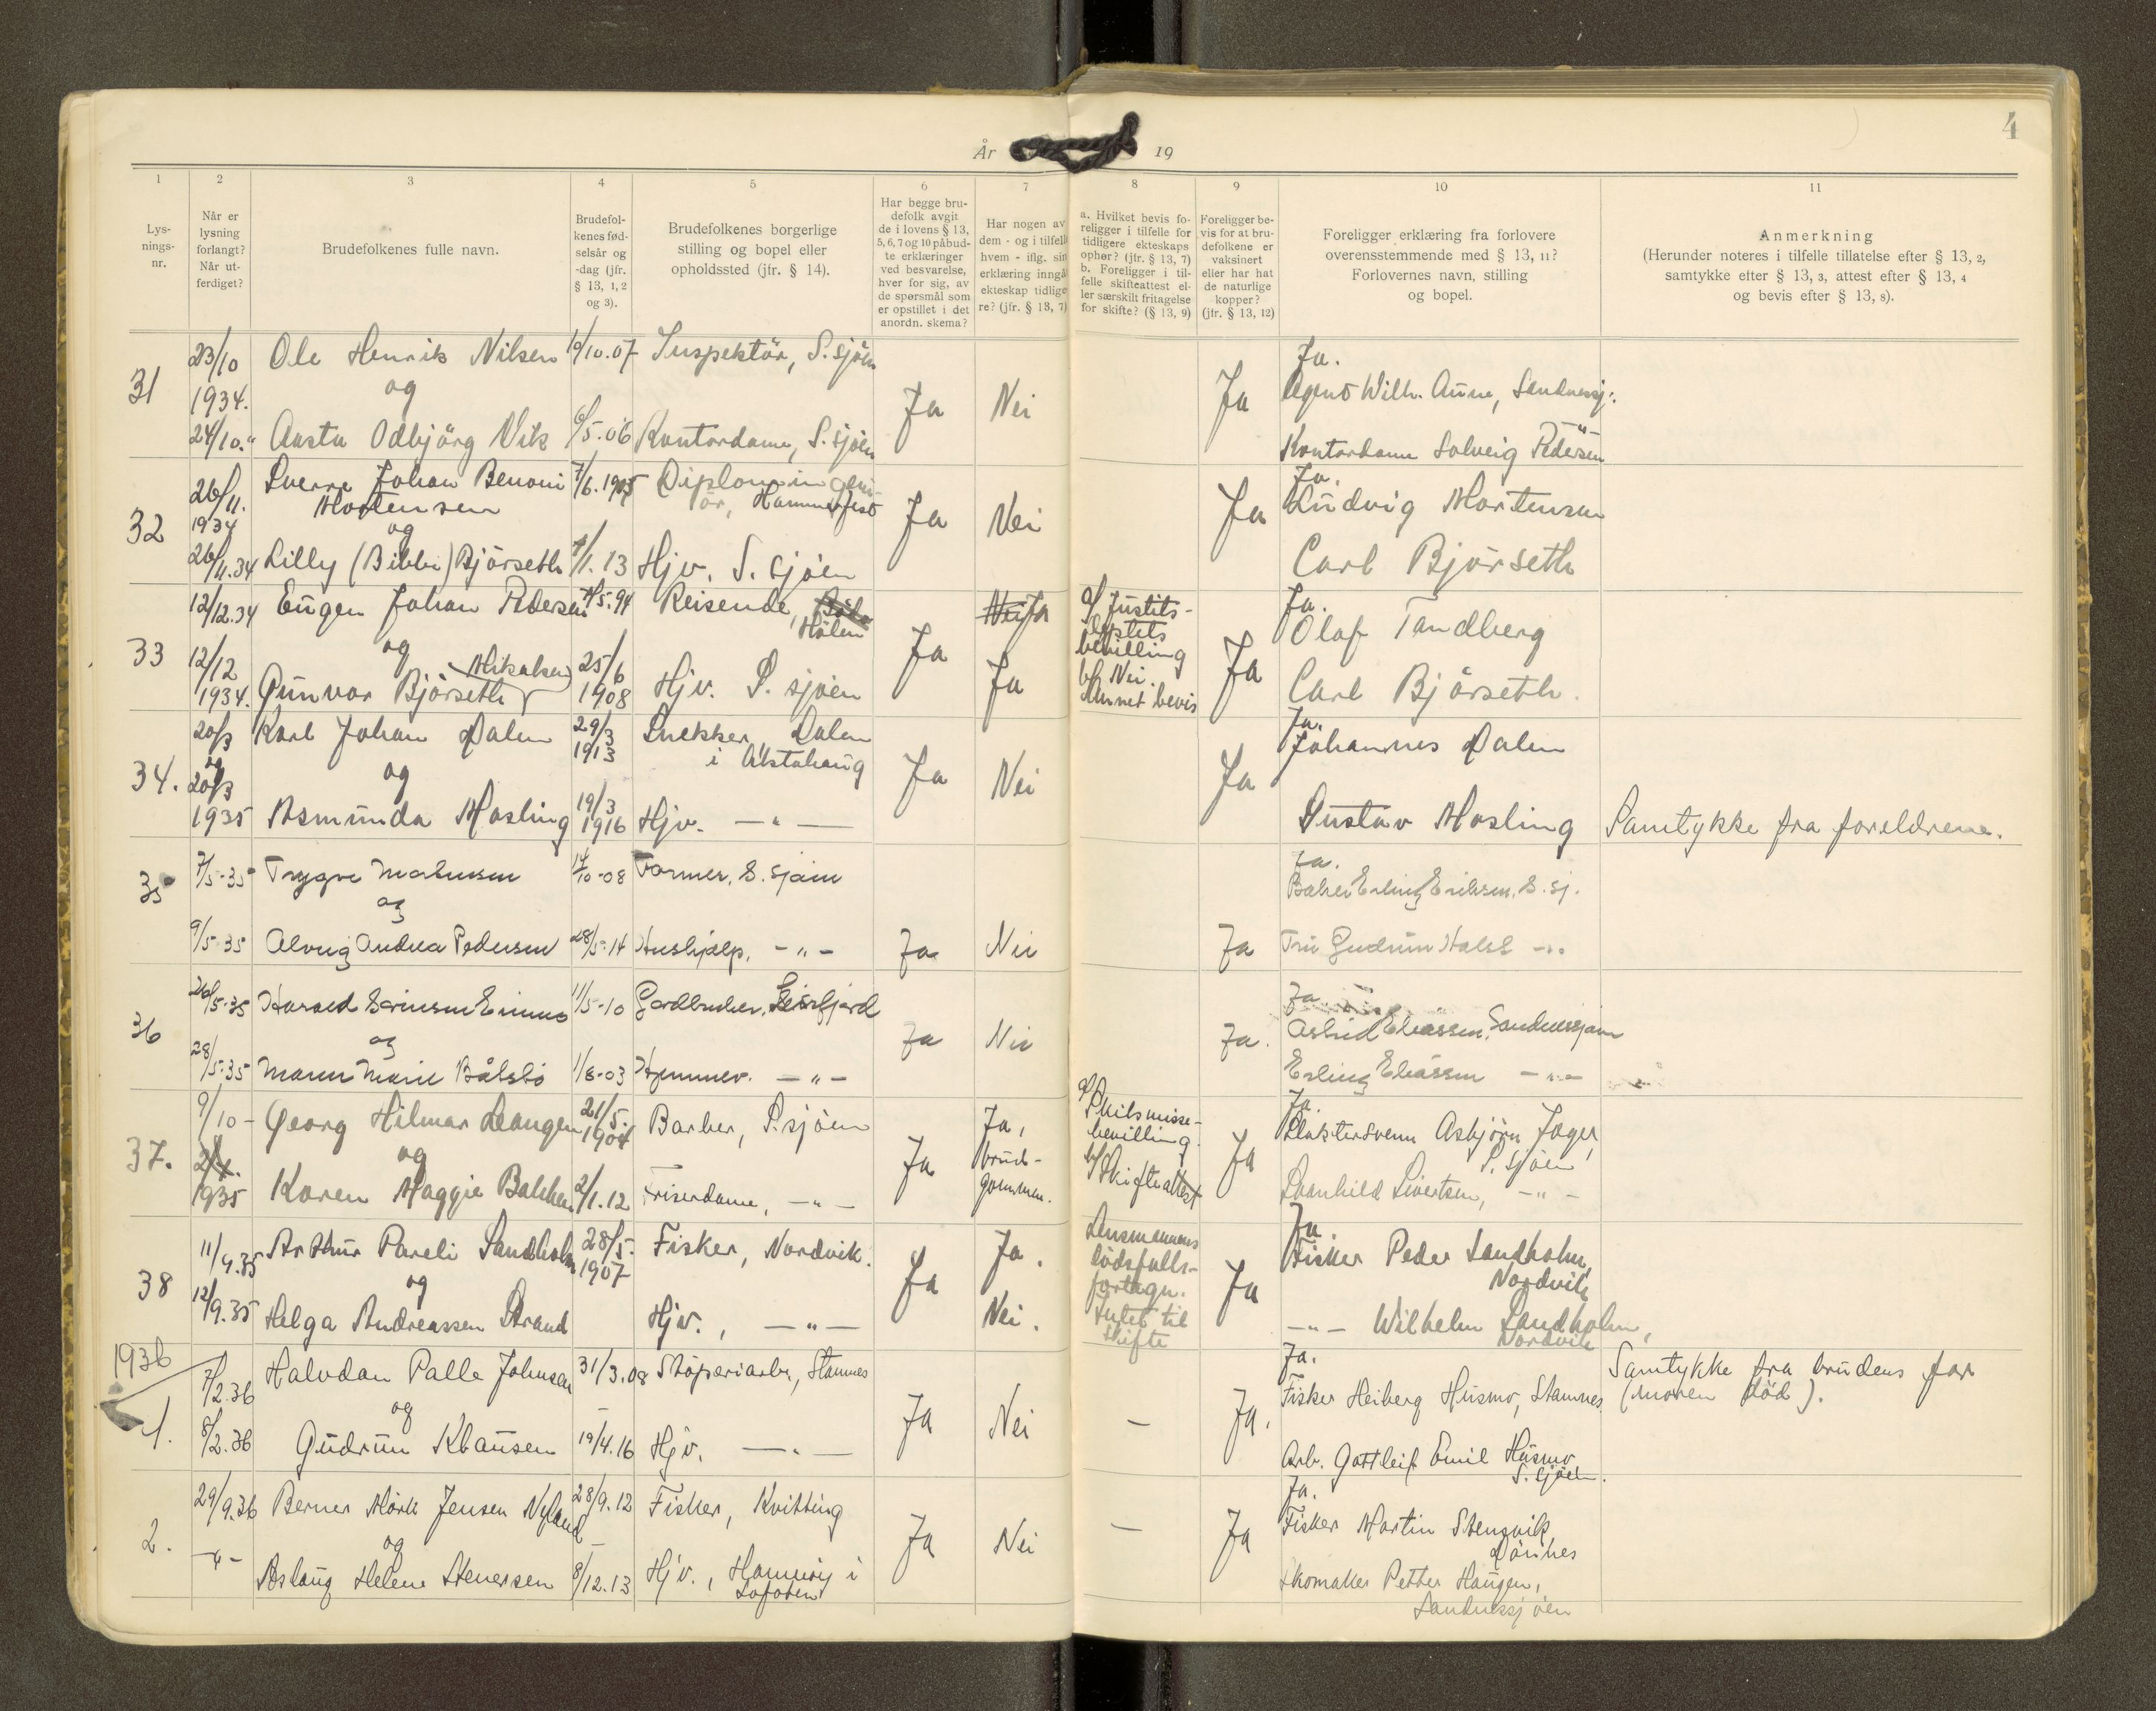 4
År 19
1 2 3 4 5 6 7 8 9 10 11
Lysningsnr.
Når er lysning forlangt? Når utferdiget?
Brudefolkenes fulle navn.
Brudefolkenes fødselsår og -dag (jfr. § 13, 1, 2 og 3).
Brudefolkenes borgerlige stilling og bopel eller opholdssted (jfr. § 14).
Har begge brudefolk avgit de i lovens § 13, 5, 6, 7 og 10 påbudte erklæringer ved besvarelse, hver for sig, av de spørsmål som er opstillet i det anordn. skema?
Har nogen av dem - og i tilfelle hvem - iflg. sin erklæring inngå ekteskap tidligere? (jfr. § 13, 7)
a. Hvilket bevis foreligger i tilfelle for tidligere ekteskaps ophør? (jfr. § 13, 7) b. Foreligger i tilfelle skifteattest eller særskilt fritagelse for skifte? (§ 13, 9)
Foreligger bevis for at brudefolkene er vaksinert eller har hat de naturlige kopper? (jfr. § 13, 12)
Foreligger erklæring fra forlovere overensstemmende med § 13, 11? Forlovernes navn, stilling og bopel.
Anmerkning (Herunder noteres i tilfelle tillatelse efter § 13, 2, samtykke efter § 13, 3, attest efter § 13, 4 og bevis efter § 13, 8).
31 23/10 1934. 24/10.
Ole Henrik Nilsen 10/10.07 Inspektör, S.sjöen
og
Aasta Odbjörg Vik 6/5.06 Kontordame, S.sjöen
Ja Nei Ja
Ja.
Agent Wilh. Aune, Sandnessj.
Kontordame Solveig Pedersen
32 26/11. 1934 26/11.34
Sverre Johan Benoni Mortensen 7/6.1905 Diplomingeniör, Hammerfest
og
Lilly (Bibbi) Björseth 4/1.13 Hjv. S.sjöen
Ja Nei Ja
Ja.
Ludvig Mortensen
Carl Björseth
33 12/12.34 12/12 1934.
Eugen Johan Pedersen 4/5.94 Reisende, Hålen
og
Gunvor Björseth Mikalsen 25/6 1908 Hjv. S.sjöen
Ja Nei Ja Ja
a/ Justitsbevilling
b/ Nei.
Annet bevis
Ja
Ja.
Olaf Tandberg
Carl Björseth.
34. 20/3 og 20/3 1935
Karl Johan Dalen 29/3 1913 Snekker Dalen i Alstahaug
og
Asmunda Mosling 19/3 1916 Hjv. -"-
Ja Nei Ja
Ja.
Johannes Dalen
Gustav Mosling Samtykke fra foreldrene.
35 7/5-35 9/5 35
Trygve 14/10-08 Farmer, S.sjöen
og
Alvug Andrea Pedersen 28/5-14 Hushjælp, -"-
Ja Nei Ja
Ja.
Baker Erling Eriksen, S.sj.
Fru Gudrun -"-
36 26/5-35 28/5-35
Harald 11/5-10 Gardbruker, Leirfjord
og
Maren Marie 1/8-03 Hjemmev. -"-
Ja Nei Ja.
Ja
Astrid Eliassen, Sandnessjøen
Erling Eliassen -"-
37. 9/10 - 1935
Georg Hilmar Leangen 21/5. 1904 Barber, S.sjöen
og
Karen Maggie Bakken 2/1.12 Friserdame, -"-
Ja Ja, brudgommen.
a/ Skilsmissebevilling.
b/ Skifteattest
Ja
Ja.
Slaktersvenn Asbjörn Jager, S.sjöen
Svanhild Sivertsen, -"-
38 11/9.35 12/9.35
Arthur Pareli Sandholm 28/5. 1907 Fisker, Nordvik.
og
Helga Andreassen Strand Hjv., -"-
Ja Ja. Nei.
Lensmannens dödsfallsfortegn. Intet til skifte
Ja
Ja.
Fisker Peder Sandholm, Nordvik
-"- Wilhelm Sandholm, Nordvik
1936
1. 7/2.36 8/2.36
Halvdan Palle Johnsen 31/3.08 Stöperiarb., Stamnes
og
Gudrun Klausen 19/4.16 Hjv. -"-
Ja Nei - Ja.
Ja.
Fisker Heiberg Husmo, Stamnes.
Arb. Gottleif Emil Husmo S.sjöen.
Samtykke fra brudens far (moren död).
2. 29/9.36 -"-
Berner Mörk Jensen Nyland 28/9.12 Fisker, Kvitting
og
Aslaug Helene Stenersen 8/12.13 Hjv., i Lofoten
Ja Nei - Ja
Ja.
Fisker Martin Stensvik, Dönnes
Skomaker Petter Haugen, Sandnessjöen